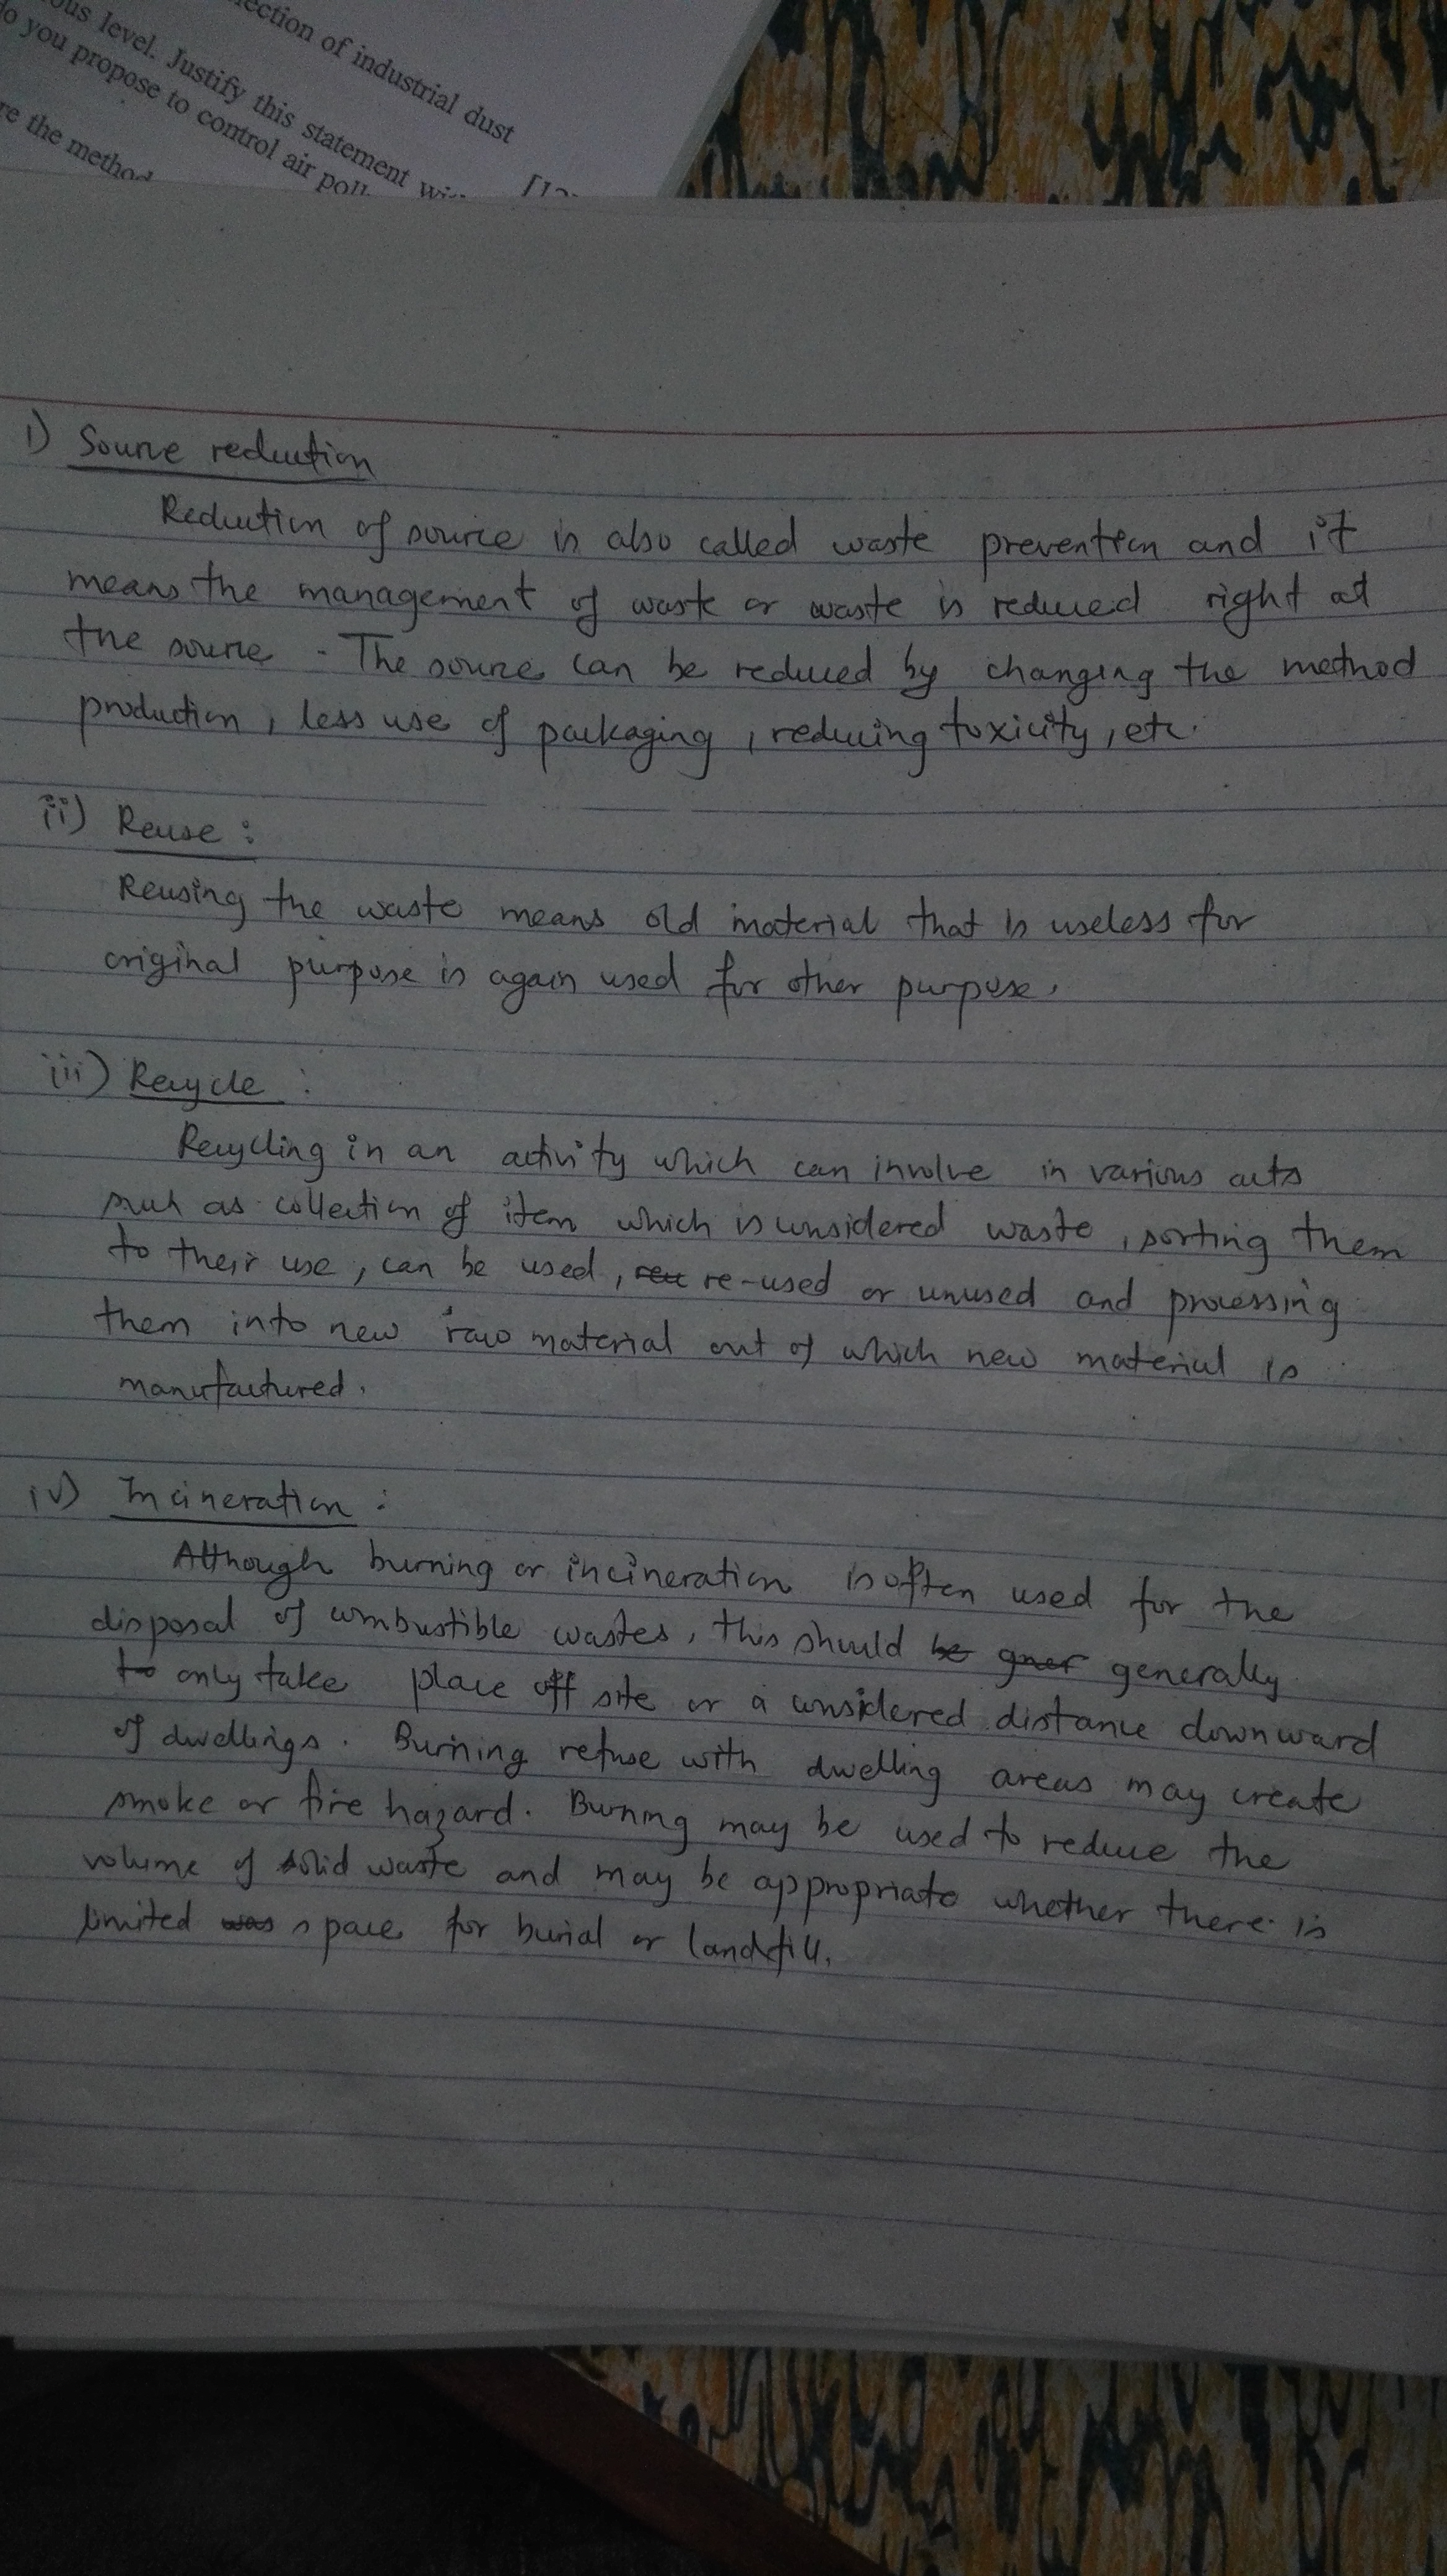 ection of industrial dust
ous level. Justify this statement
do you propose to control air poll
re the method
i) Source reduction
Reduction of source is also called waste prevention and it
means the management of waste or waste is reduced right at
the source. The source can be reduced by changing the method
production, less use of packaging, reducing toxicity, etc.
ii) Reuse:
Reusing the waste means old material that is useless for
original purpose is again used for other purpose.
iii) Recycle:
Recycling in an activity which can involve in various acts
such as collection of item which is considered waste, sorting them
to their use, can be used, re-used or unused and processing
them into new raw material out of which new material is
manufactured.
iv) Incineration:
Although burning or incineration is often used for the
disposal of combustible wastes, this should generally
only take place off site or a considered distance downward
of dwellings. Burning refuse with dwelling areas may create
smoke or fire hazard. Burning may be used to reduce the
volume of solid waste and may be appropriate whether there is
limited space for burial or landfill.